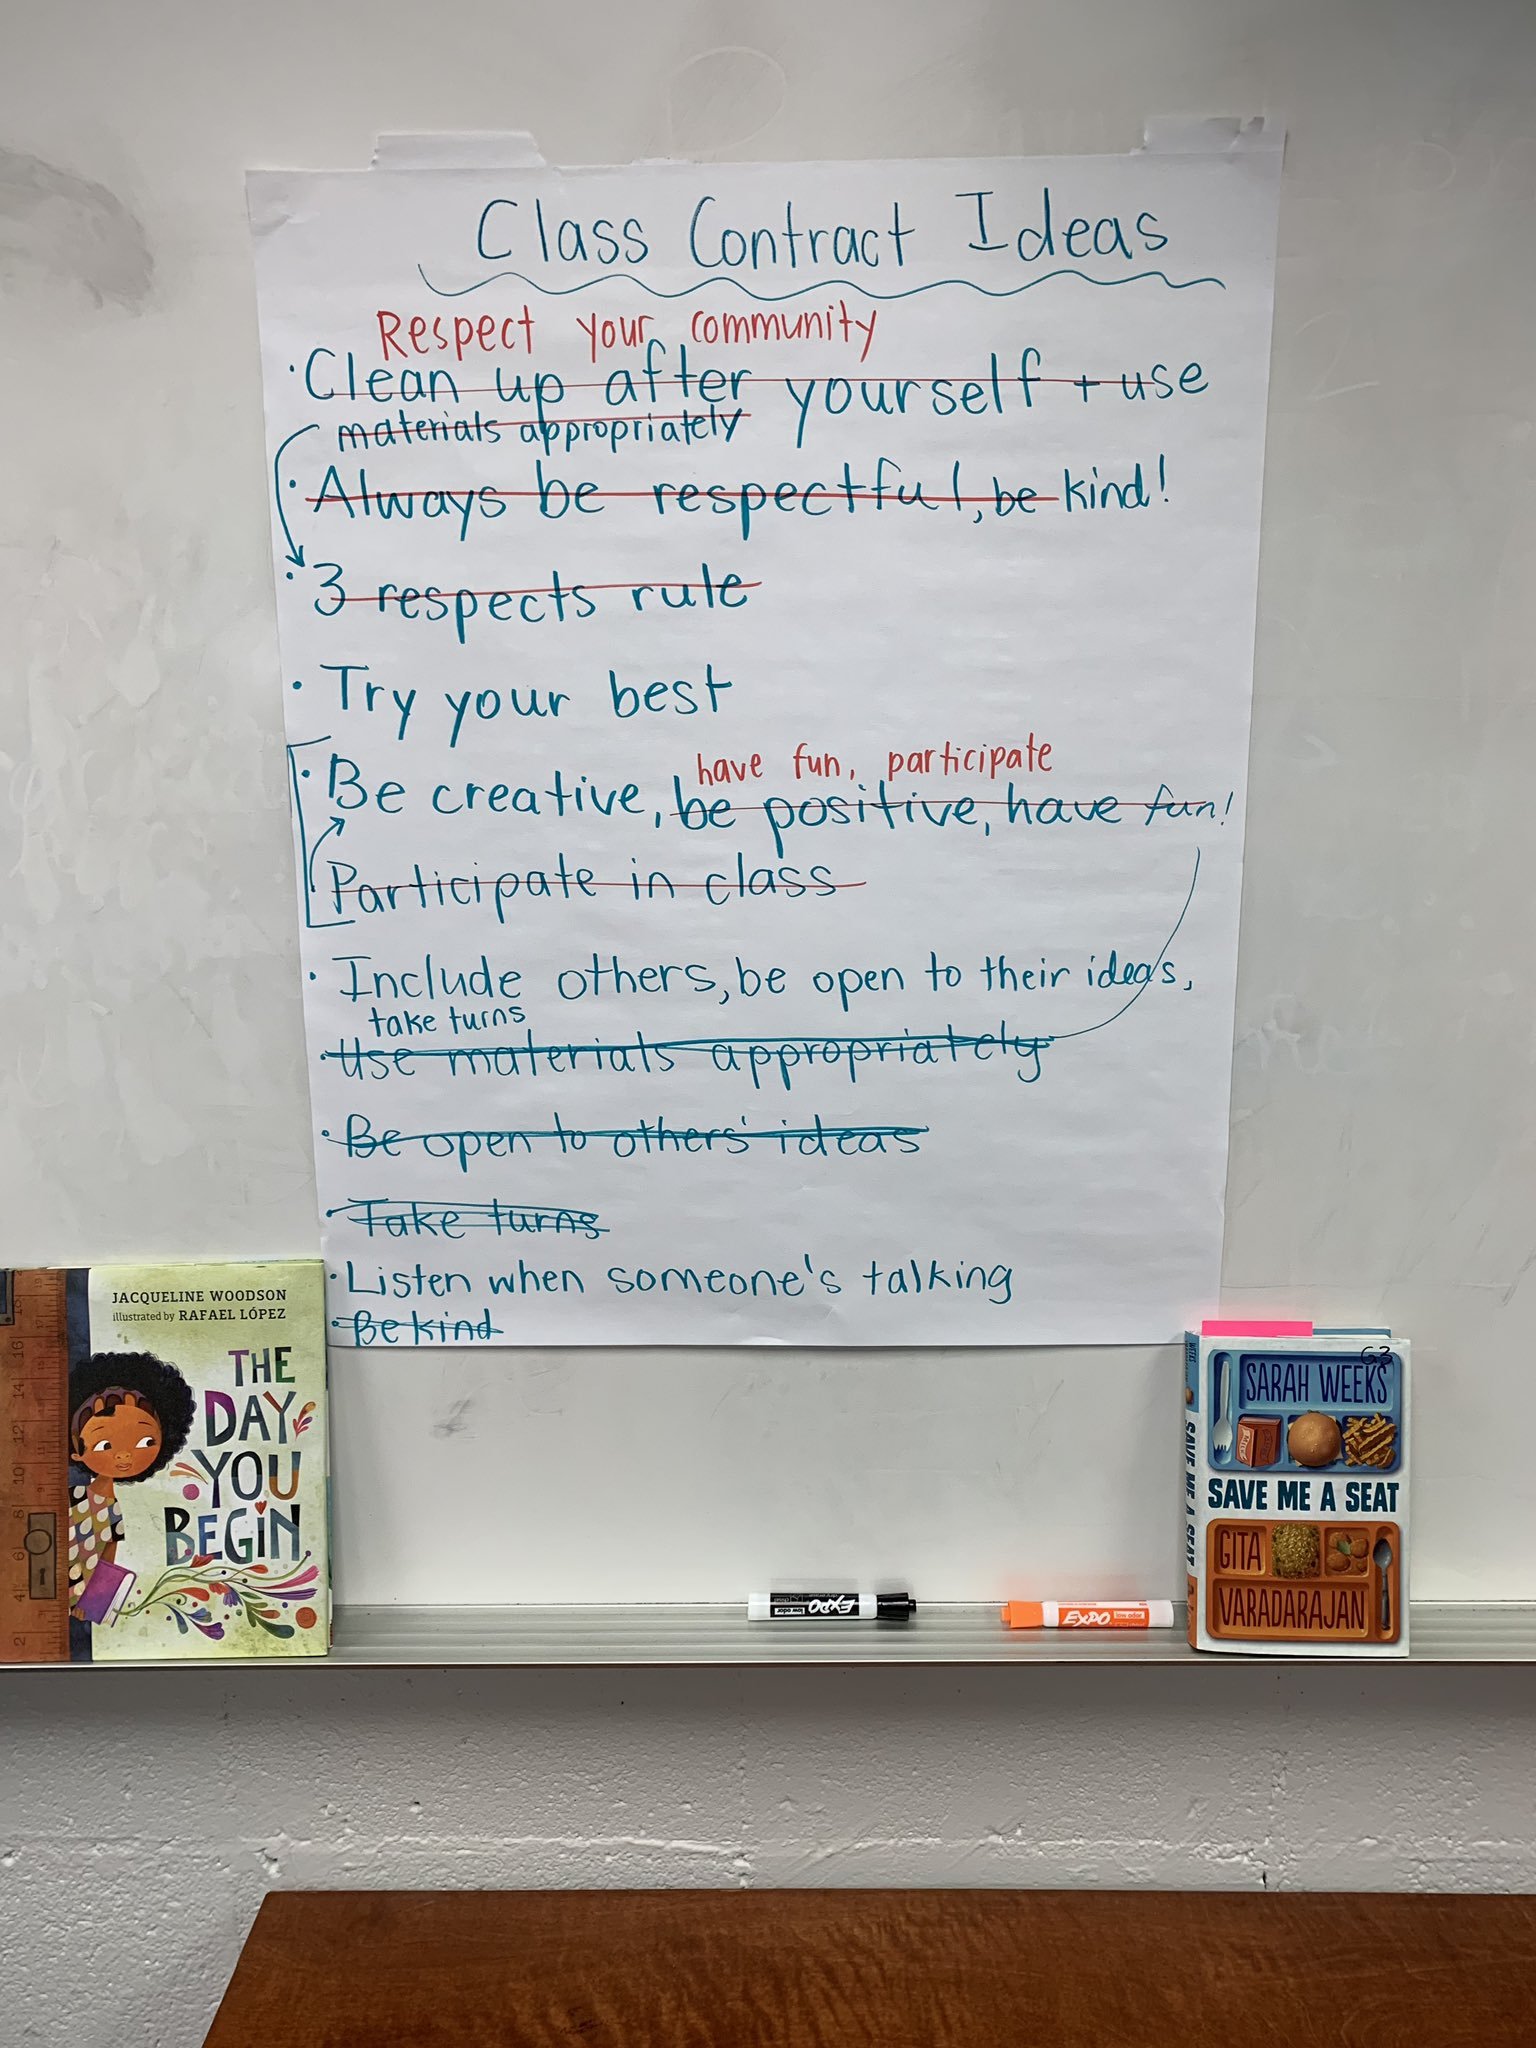 Class Contract Ideas
Respect your community
· Clean up after yourself + use
materials appropriately
· Always be respectful, be kind!
· 3 respects rule
· Try your best
have fun, participate
· Be creative, be positive, have fun!
Participate in class
· Include others, be open to their ideas,
take turns
· Use materials appropriately
· Be open to others' ideas
· Take turns
· Listen when someone's talking
· Be kind
JACQUELINE WOODSON
illustrated by RAFAEL LÓPEZ
THE
DAY
YOU
BEGIN
18
16
14
12
10
8
6
4
2
EXPO low odor
EXPO low odor
G3
SARAH WEEKS
SAVE ME A SEAT
GITA
VARADARAJAN
WEEKS
SAVE ME A SEAT